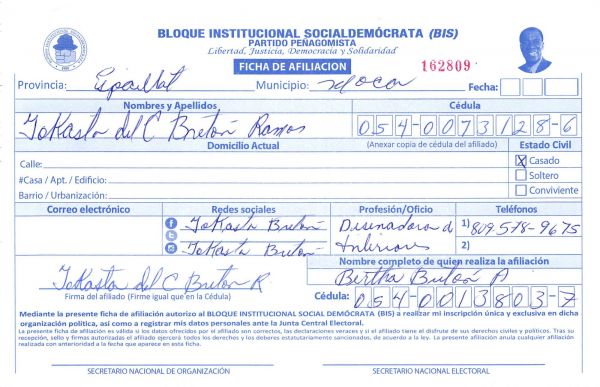 BLOQUE INSTITUCIONAL SOCIALDEMÓCRATA (BIS)
PARTIDO PEÑAGOMISTA
Libertad, Justicia, Democracia y Solidaridad
FICHA DE AFILIACION
162809
Provincia: Espaillat Municipio: Moca Fecha:
Nombres y Apellidos Cédula
JoKasta del C Bretón Ramos 054-0073128-6
(Anexar copia de cédula del afiliado)
Domicilio Actual Estado Civil
Calle: X Casado
#Casa / Apt. / Edificio: Soltero
Barrio / Urbanización: Conviviente
Correo electrónico Redes sociales Profesión/Oficio Teléfonos
JoKasta Bretón Disenadora d 1) 809-578-9675
JoKasta Bretón Interiores 2)
Nombre completo de quien realiza la afiliación
JoKasta del C Breton R Bertha Bretón P
Firma del afiliado (Firme igual que en la Cédula) Cédula: 054-0013803-7
Mediante la presente ficha de afiliación autorizo al BLOQUE INSTITUCIONAL SOCIAL DEMÓCRATA (BIS) a realizar mi inscripción única y exclusiva en dicha
organización política, así como a registrar mis datos personales ante la Junta Central Electoral.
La presente ficha de afiliación es válida si los datos ofrecidos por el afiliado son correctos, las declaraciones veraces y si el afiliado tiene el disfrute de sus derechos civiles y políticos. Tras su
recepción, sello y firmas autorizadas el afiliado ejercerá todos los derechos y los deberes estatutariamente sancionados, de acuerdo a la ley. La presente afiliación anula cualquier afiliación
realizada con anterioridad a la fecha que aparece en esta ficha.
SECRETARIO NACIONAL DE ORGANIZACIÓN SECRETARIO NACIONAL ELECTORAL